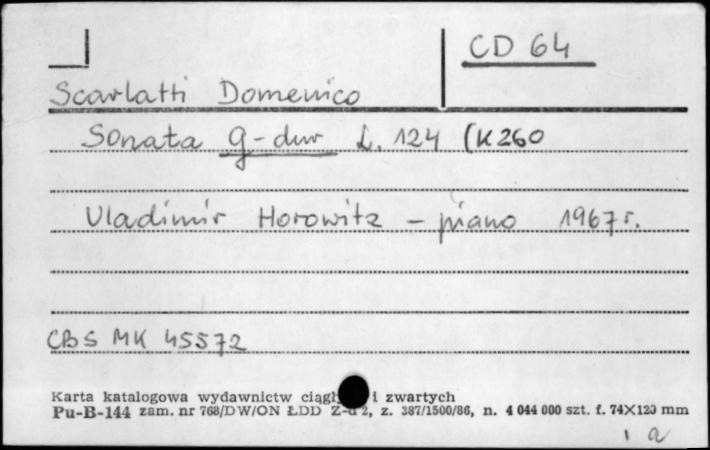 CD 64
Scarlatti Domenico
Sonata g-dur L. 124 (K260
Vladimir Horowitz – piano 1967 r.
CBS MK 45572
Karta katalogowa wydawnictw i zwartych
Pu-B-144 zam. nr 768/DW/ON ŁDD 2, z. 387/1500/86, n. 4 044 000 szt. f. 74X120 mm
a